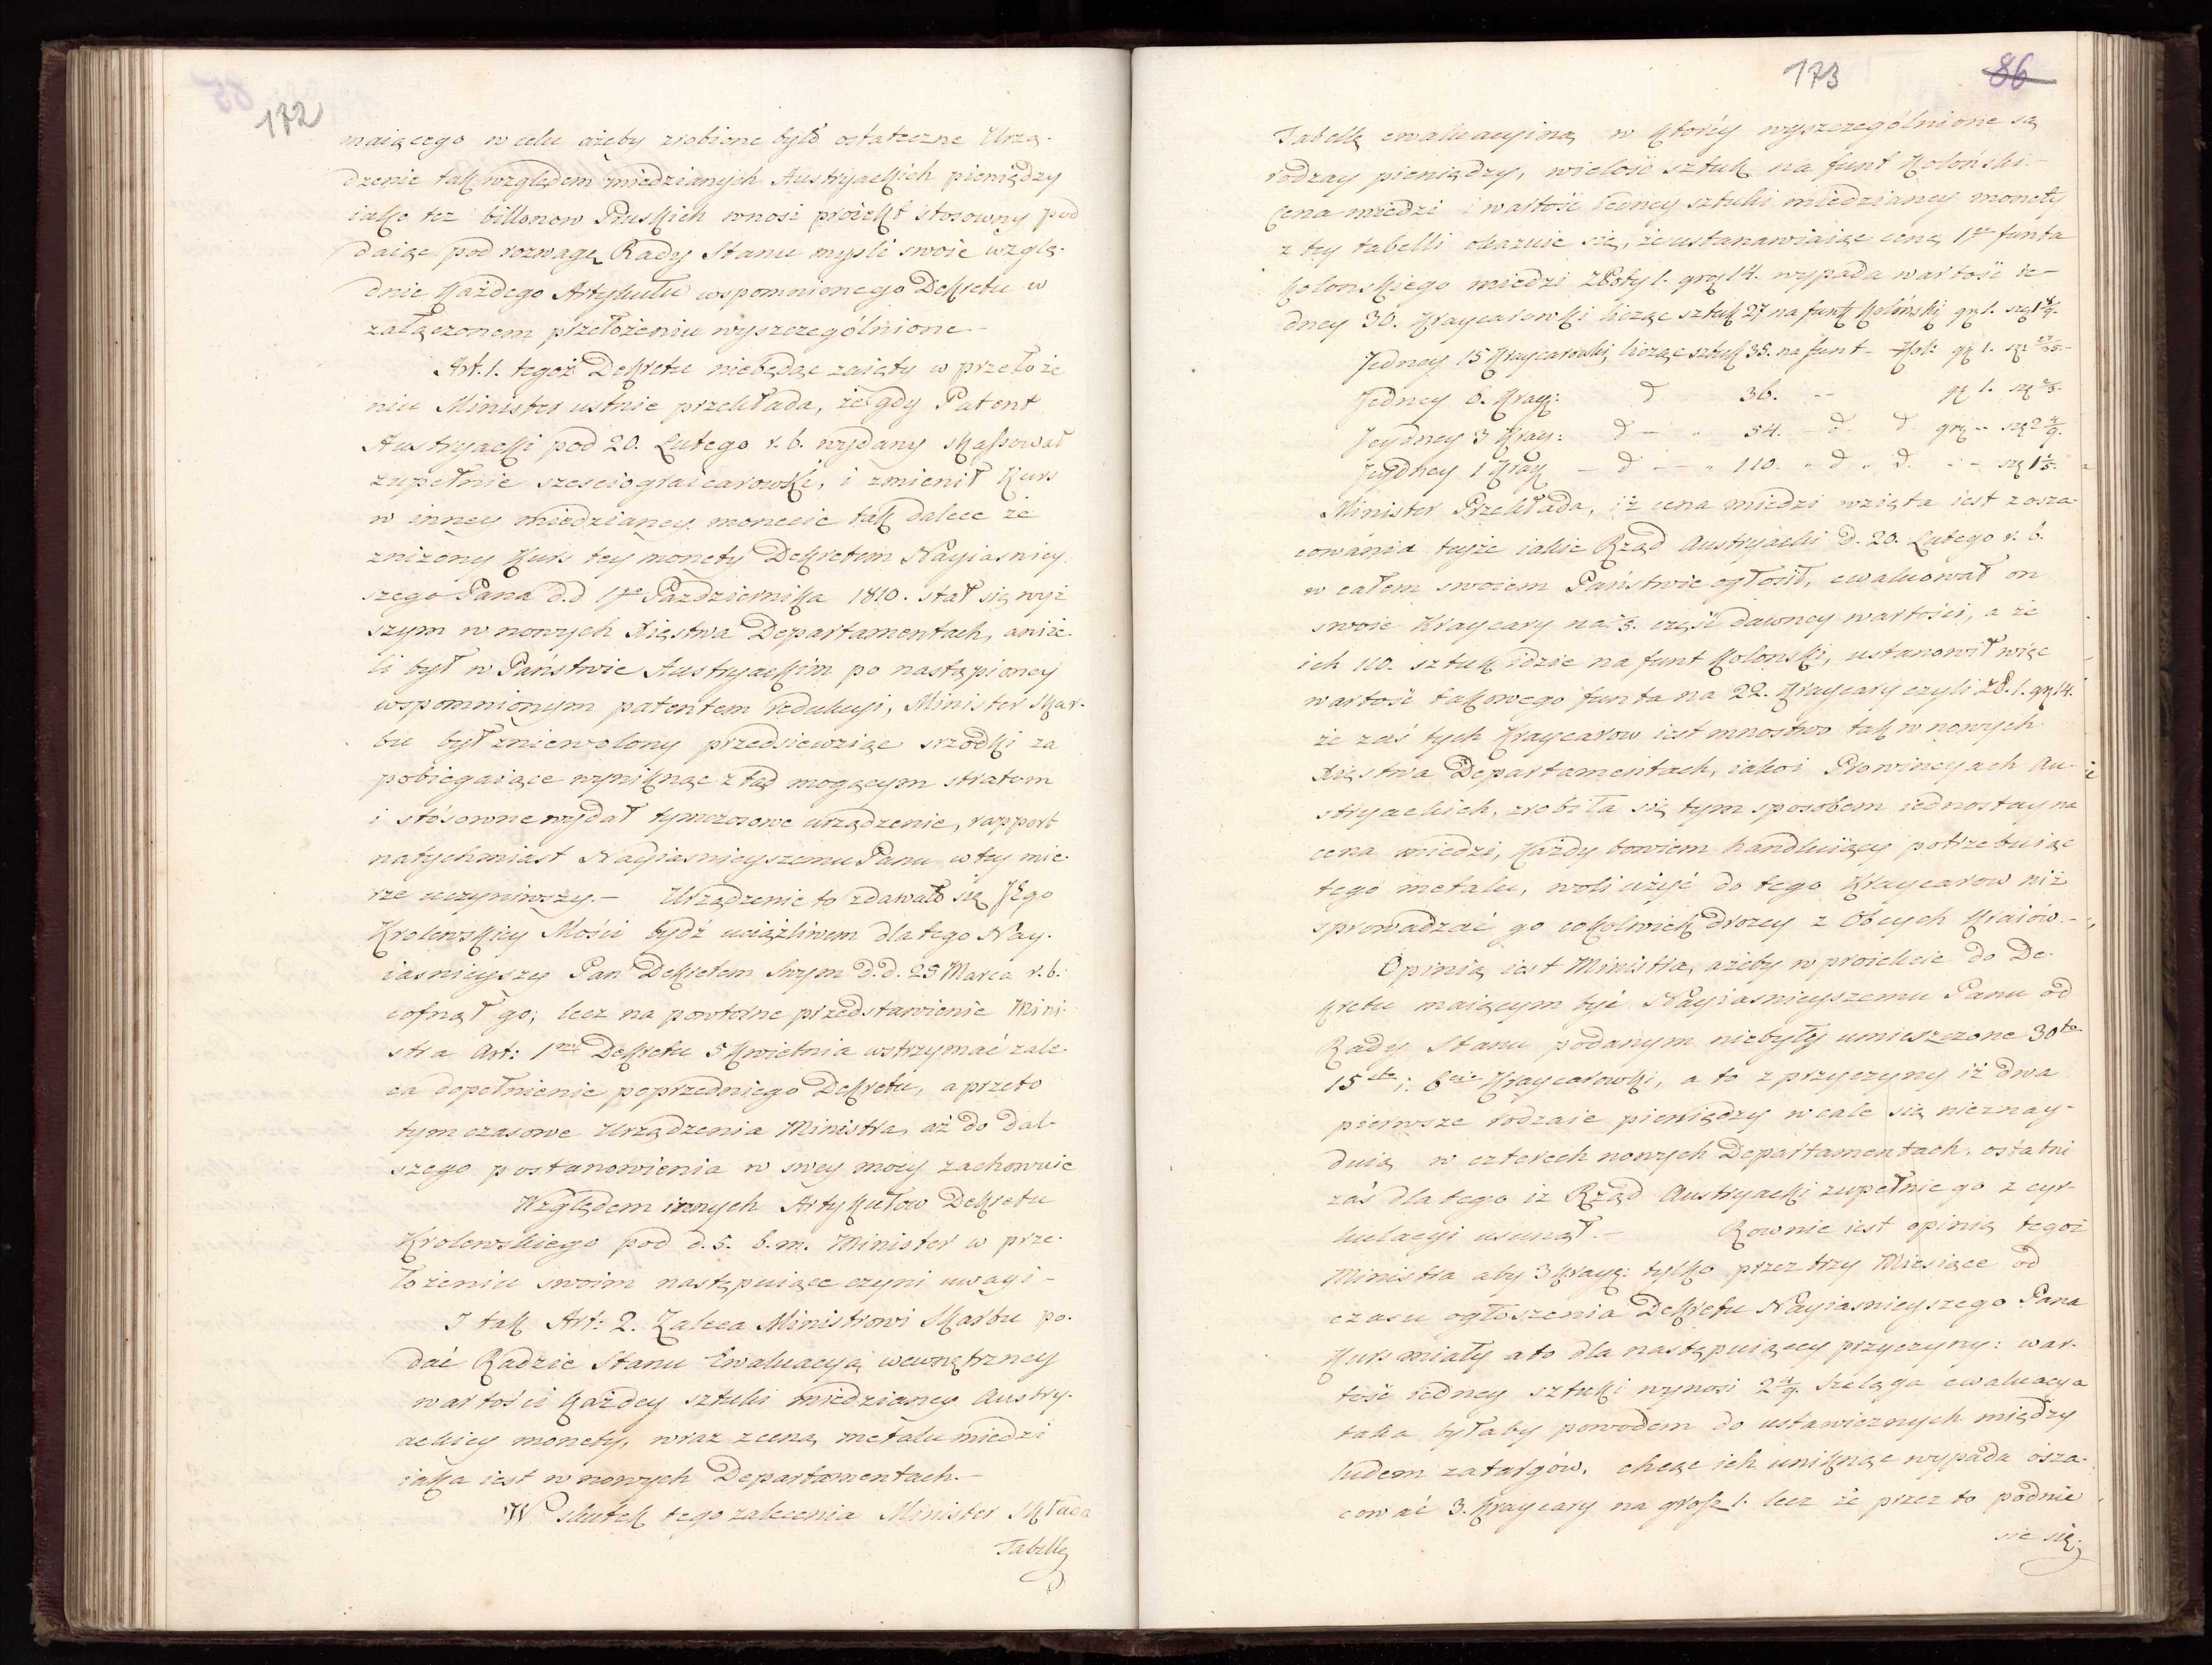 172
maiącego w celu ażeby zrobione było ostateczne Urzą-
dzenie tak względem miedzianych Austryackich pieniędzy
iako tez billonow Pruskich wnosi proiekt stosowny pod
daiąc pod rozwagę Rady Stanu mysli swoie wzglę-
dnie każdego Artykułu wspomnionego Dekretu w
załączonem przełożeniu wyszczególnione –
Art. 1. tegoż Dekretu niebędąc zaięty w przełoże
niu Minister ustnie przekłada, że gdy Patent
Austryacki pod 20. Lutego r. b. wydany skassował
zupełnie szesciograicarowki, i zmienił Kurs
w inney miedzianey monecie tak dalece że
zniżony Kurs tey monety Dekretem Nayiasniey
szego Pana d.d 1go Pazdziernika 1810. stał się wyż
szym w nowych Xięstwa Departamentach, aniże-
li był w Państwie Austryackim po nastąpioney
wspomnionym patentem redukcyi, Minister Skar-
bu był zniewolony przedsiewziąc srzodki za
pobiegaiące wyniknąc ztąd mogącym stratom
i stósowne wydał tymczasowe urządzenie, rapport
natychmiast Nayiasnieyszemu Panu w tey mie-
rze uczyniwszy. – Urządzenie to zdawało się JEgo
Krolewskiey Mości bydź uciążliwem dla tego Nay-
iasnieyszy Pan Dekretem swym d.d. 25 Marca r. b.
cofnął go; lecz na powtorne przedstawienie Mini-
stra Art: 1m Dekretu 5 Kwietnia wstrzymać zale
ca dopełnienie poprzedniego Dekretu, a przeto
tymczasowe Urządzenia Ministra, aż do dal-
szego postanowienia w swey mocy zachowuie
Względem innych Artykułow Dekretu
Krolewskiego pod d. 5. b. m. Minister w prze-
łożeniu swoim następuiące czyni uwagi –
I tak Art: 2. Zaleca Ministrowi Skarbu po-
dać Radzie Stanu Ewaluacyą wewnętrzney
wartości każdey sztuki miedzianey Austry-
ackiey monety, wraz z ceną metalu miedzi
iaka iest w nowych Departamentach. –
W skutek tego zalecenia Minister Składa
Tabellę
173 86
Tabellę ewaluacyiną w ktorey wyszczególnione są
rodzay pieniędzy, wielość sztuk na funt Koloński –
Cena miedzi i wartość iedney sztuki miedzianey monety
z tey tabelli okazuie się, że ustanawiaiąc cenę 1go funta
Kolonskiego miedzi Złoty 1. gr 14. wypada wartość ie-
dney 30. Kraycarowki licząc sztuk 27 na funt Koloński gr 1. szl 1 8/9.
Jedney 15 Kraycarowki, licząc sztuk 35. na funt – Kol: gr 1. sz: 27/35.
Jedney 6. Kray: d 36. – – gr 1. sz 2/3.
Jeydney 3 Kray: d – " 54. – d. d. gr – sz 2 4/9.
Jeydney 1 Kray – d – – " 110. " d " d. – – sz 1 1/5.
Minister Przekłada, iż cena miedzi wzięta iest z osza-
cowania teyże iakie Rząd Austryacki d. 20. Lutego r. b.
w całem swoiem Państwie ogłosił, ewaluował on
swoie Kraycary na 5. część dawney wartości, a że
ich 110. sztuk idzie na funt Kolonski, ustanowił więc
wartość takowego funta na 22. Kraycary czyli Zł. 1. gr 14.
że zaś tych Kraycarow iest mnostwo tak w nowych
Xięstwa Departamentach, iako i Prowincyach Au-
stryackich, zrobiła się tym sposobem iednostayna
cena miedzi, każdy bowiem handluiący potrzebuiąc
tego metalu, woli użyć do tego Kraycarow niż
sprowadzać go cokolwiek drożey z Obcych Kraiów. –
Opinią iest Ministra, ażeby w proiekcie do De-
kretu maiącym być Nayiasnieyszemu Panu od
Rady Stanu podanym niebyły umieszczone 30to
15to i 6cio Kraycarowki, a to z przyczyny iż dwa
pierwsze rodzaie pieniędzy wcale się nieznay-
duią w czterech nowych Departamentach, ostatni
zaś dla tego iż Rząd Austryacki zupełnie go z cyr-
kulacyi usunął. – Rownie iest opinią tegoż
Ministra aby 3 Kray: tylko przez trzy Miesiące od
czasu ogłoszenia Dekretu Nayiasnieyszego Pana
Kurs miały a to dla następuiącey przyczyny: war-
tość iedney sztuki wynosi 2 4/9. Szeląga ewaluacya
taka byłaby powodem do ustawicznych między
ludem zatargów, chcąc ich uniknąc wypada osza-
cować 3. Kraycary na grosz 1. lecz że przez to podnie
sie się.